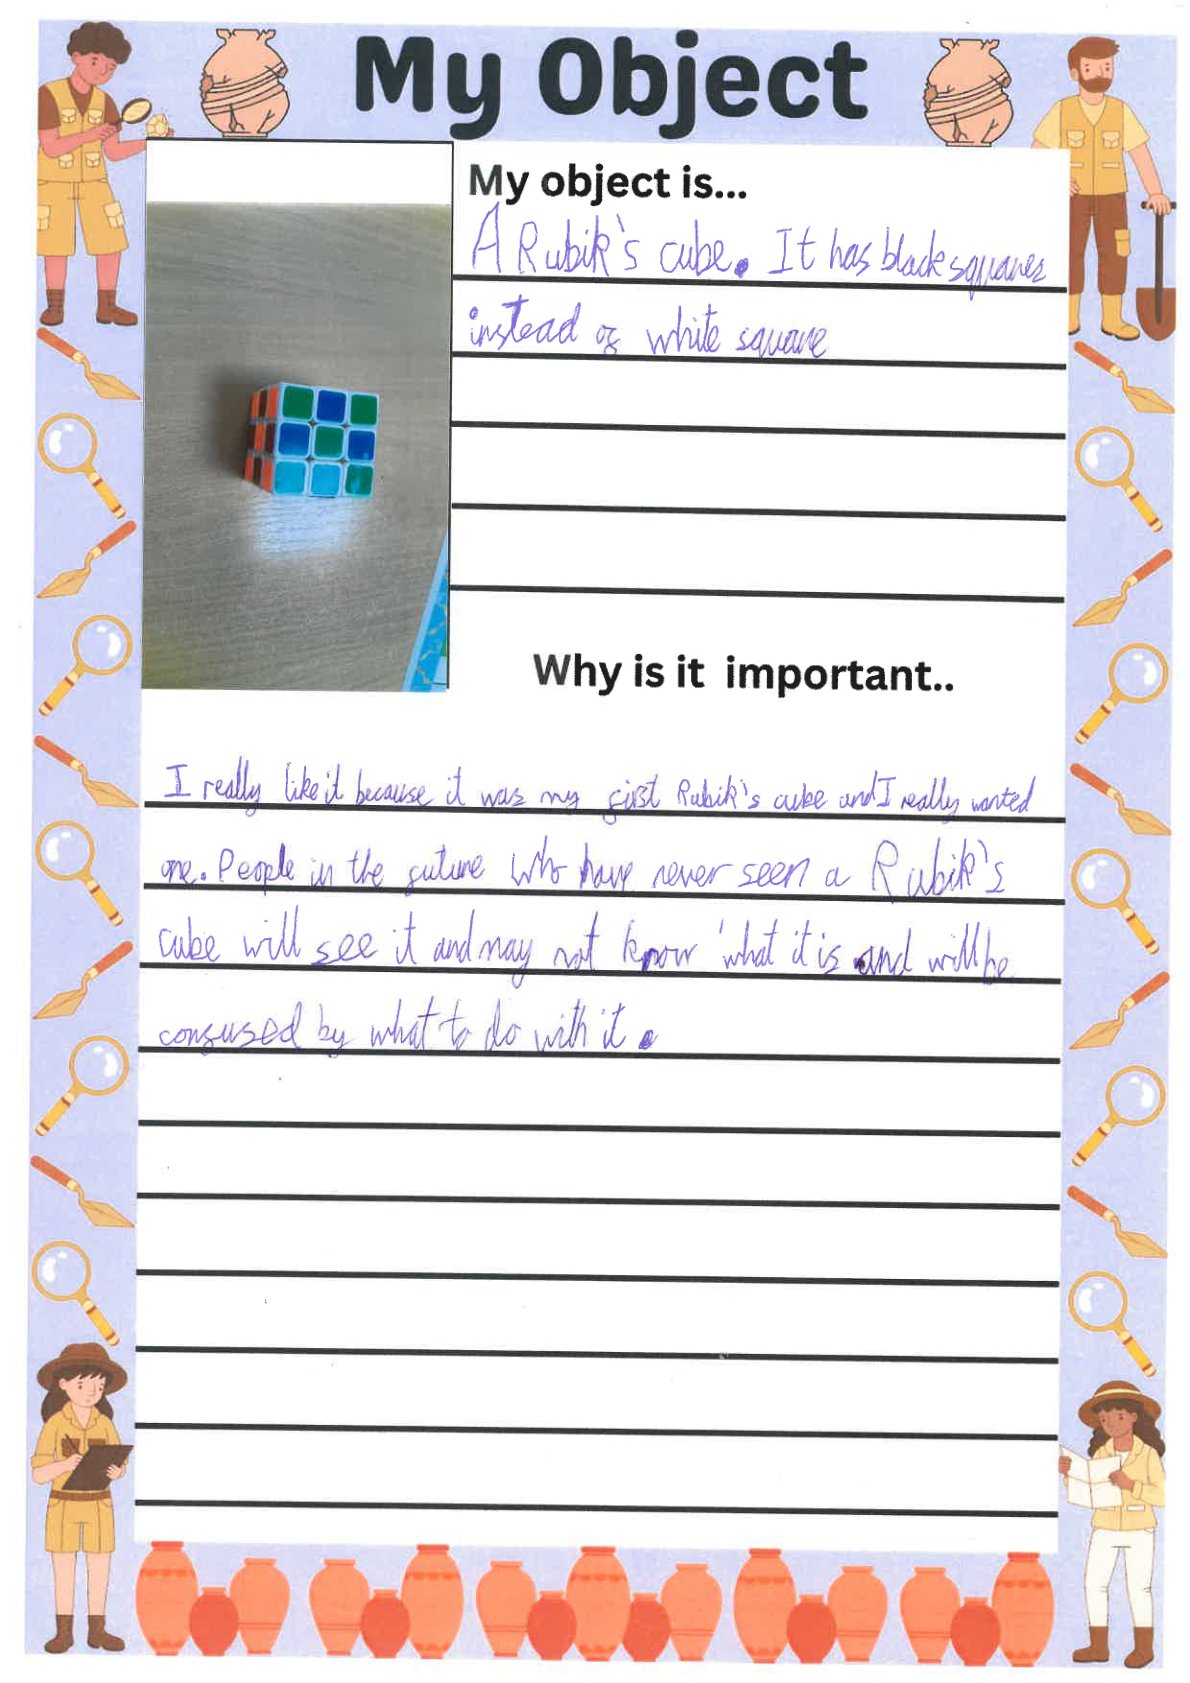 My Object
My object is...
A Rubik's cube. It has black squares
instead of white square
Why is it important..
I really like it because it was my first Rubik's cube and I really wanted
one. People in the future who have never seen a Rubik's
cube will see it and may not know what it is and will be
confused by what to do with it.